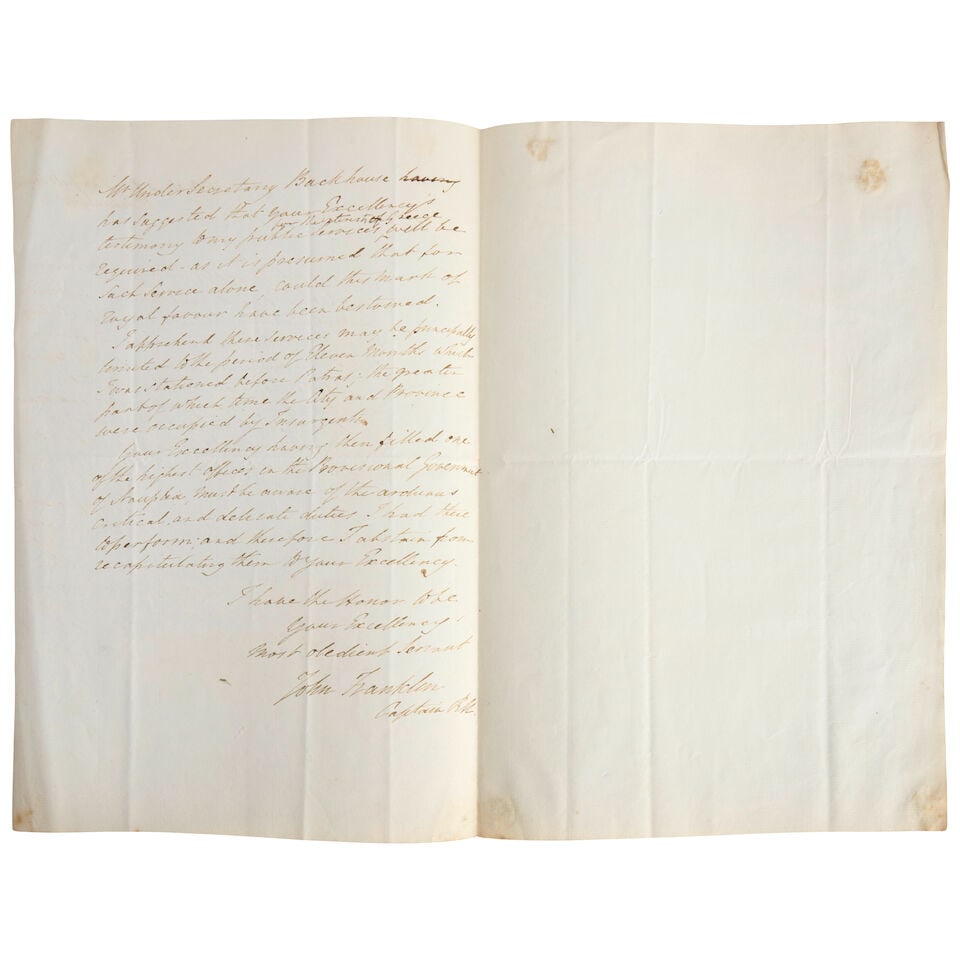 Mr Under Secretary Backhouse having
has suggested that your Excellency's
for the interest of Greece
testimony to my public services, will be
required - as it is presumed that for
such Service alone, could this Mark of
Royal favour have been bestowed.
I apprehend these Services may be principally
limited to the period of Eleven Months which
I was stationed before Patras; the greater
part of which time the City and Province
were occupied by Insurgents.
Your Excellency having then filled one
of the highest offices in the Provisional Government
of Nauplia, must be aware of the arduous
critical, and delicate duties I had there
to perform; and therefore I abstain from
recapitulating them to Your Excellency.
I have the Honor to be
Your Excellency's
Most obedient Servant
John Franklin
Captain R.N.